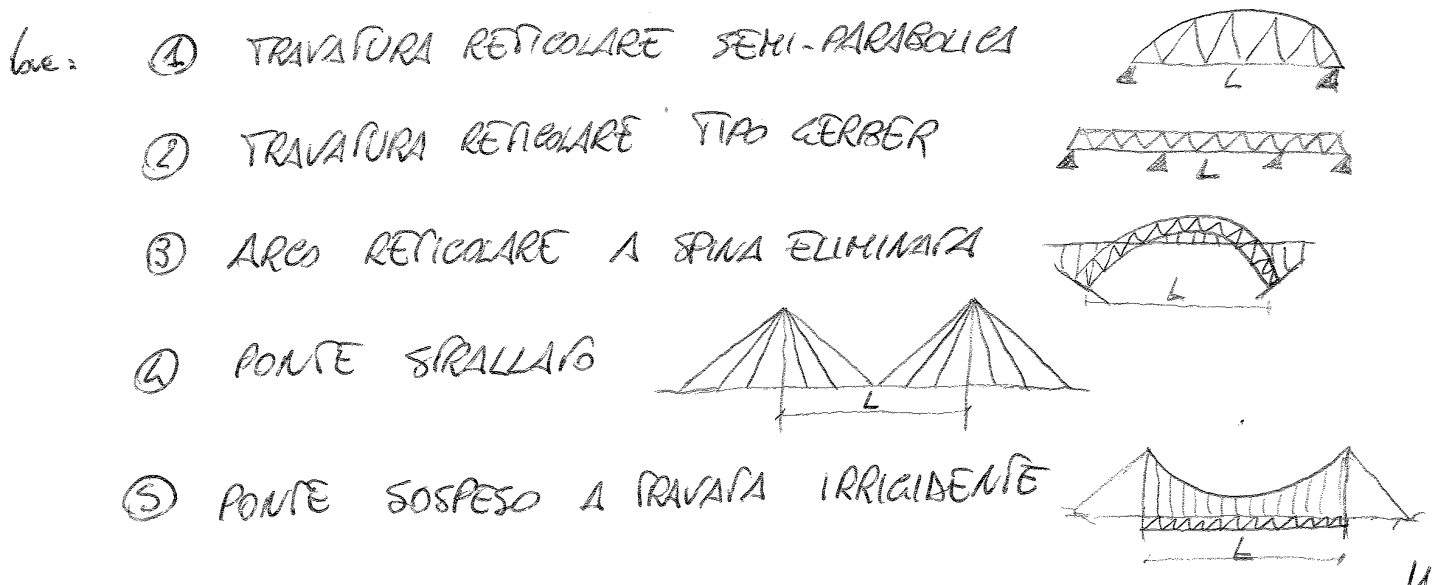 ① TRAVATURA RETICOLARE SEMI-PARABOLICA
L
② TRAVATURA RETICOLARE TIPO GERBER
L
③ ARCO RETICOLARE A SPINA ELIMINATA
L
④ PONTE STRALLATO
L
⑤ PONTE SOSPESO A TRAVATA IRRIGIDENTE
L